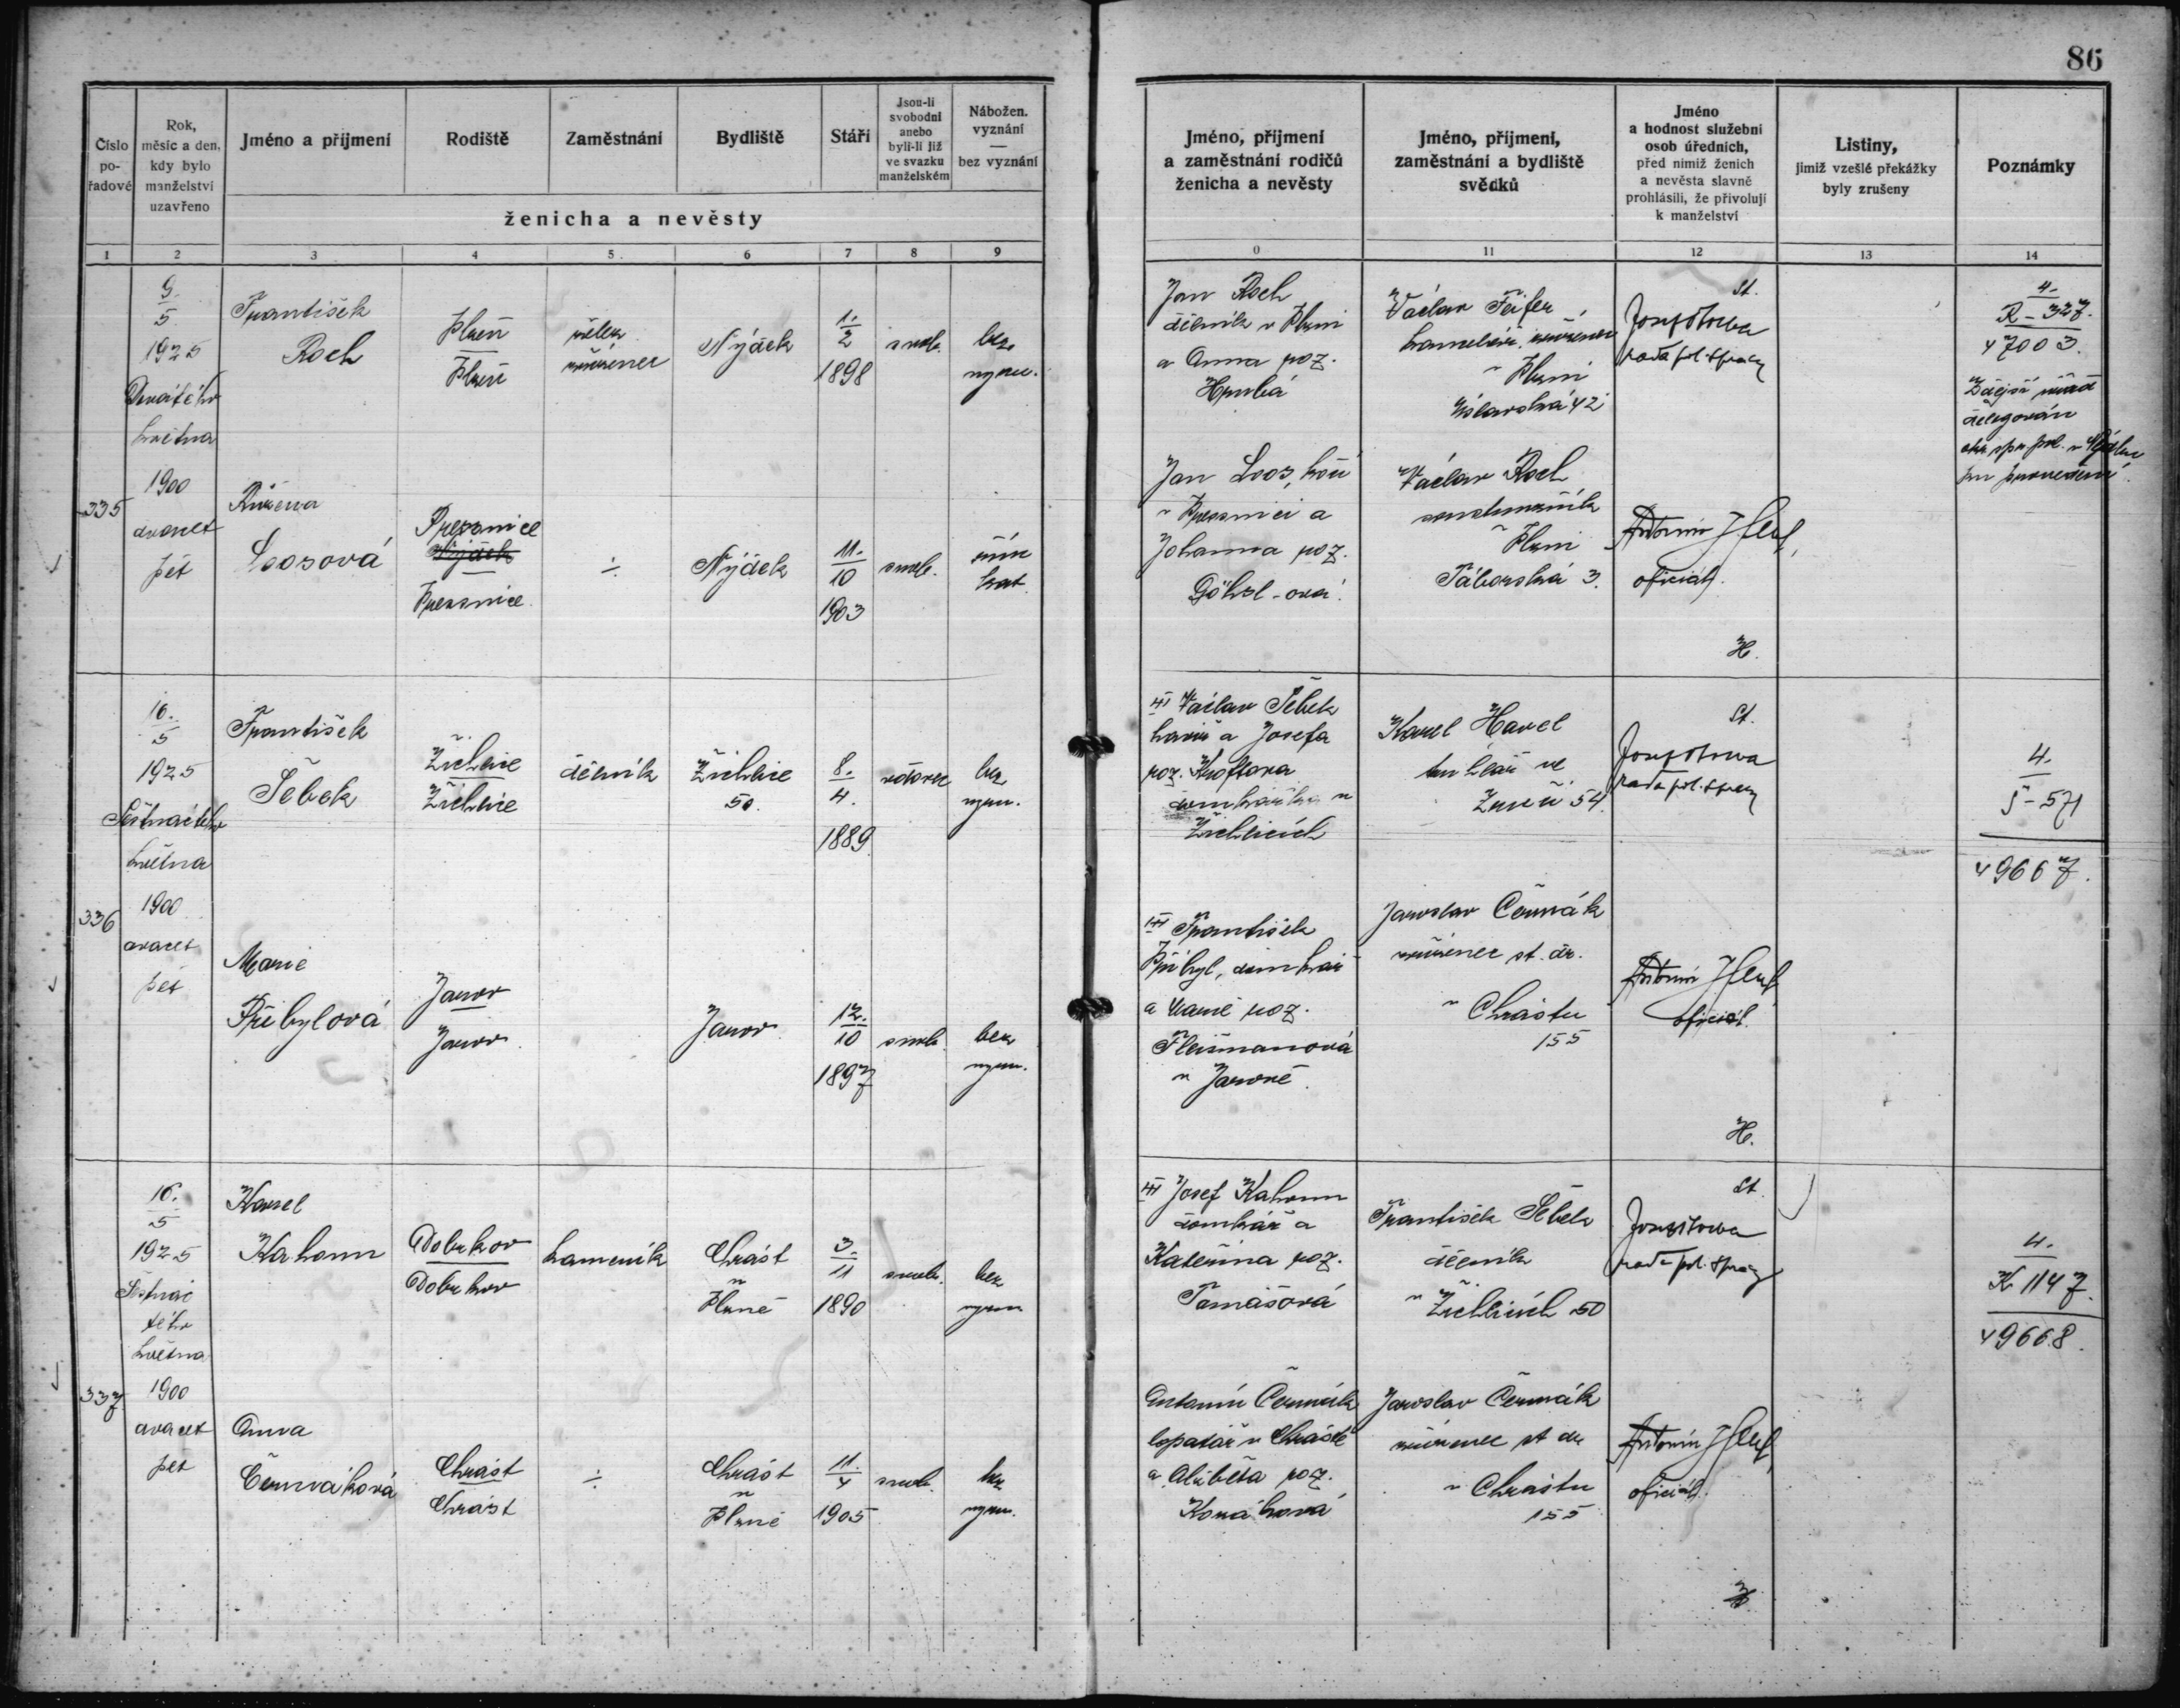 86
Číslo pořadové
Rok, měsíc a den, kdy bylo manželství uzavřeno
Jméno a příjmení
Rodiště
Zaměstnání
Bydliště
Stáří
Jsou-li svobodni anebo byli-li již ve svazku manželském
Nábožen. vyznání — bez vyznání
ženicha a nevěsty
Jméno, příjmení a zaměstnání rodičů ženicha a nevěsty
Jméno, příjmení, zaměstnání a bydliště svědků
Jméno a hodnost služební osob úředních, před nimiž ženich a nevěsta slavně prohlásili, že přivolují k manželství
Listiny, jimiž vzešlé překážky byly zrušeny
Poznámky
1 2 3 4 5 6 7 8 9 0 11 12 13 14
335
9./5.
1925
Devátého
května
1900
dvacet
pět
František
Roch
Plzeň
Plzeň
zřízenec
Nýdek
1./2
1898
svob.
bez
vyzn.
Jan Roch
dělník v Plzni
a Anna roz.
Hrubá
Václav Feifer
v Plzni
42
St.
rada pol. správy
4.
R-327.
47003.
Zdejší úřad
delegován
Růžena
Loosová
Pressnice
Nýdek
Pressnice
÷
Nýdek
11./10
1903
svob.
řím
kat.
Jan Loos, kov
v Pressnici a
Johanna roz.
Göhsl-ová.
Václav Roch
v Plzni
Táborská 3.
Antonín
oficiál.
H.
336
16./5
1925
Šestnáctého
května
1900
dvacet
pět
František
Šebek
Žichlice
Žichlice
dělník
Žichlice
50.
8./4.
1889
vdovec
bez
vyzn.
Václav Šebek
havíř a Josefa
roz. Kroftova
domkářka v
Žichlicích
Karel Havel
truhlář ve
54.
St.
rada pol. správy
4.
Š-571
49667.
Marie
Přibylová
Janov
Janov
Janov
12./10
1897
svob.
bez
vyzn.
František
Přibyl, domkář
a Marie roz.
Fleišmanová
v Janově.
Jaroslav Čermák
zřízenec st. dr.
v Chrástu
155
Antonín
oficiál.
H.
337
16./5
1925
Šestnác
tého
května
1900
dvacet
pět
Karel
Kahoun
Dobrkov
Dobrkov
kameník
Chrást
u
Plzně
3./11
1890
svob.
bez
vyzn
Josef Kahoun
domkář a
Kateřina roz.
Tomášová
František Šebek
dělník
v Žichlicích 50
St.
rada pol. správy
4.
K 1147.
49668.
Anna
Čermáková
Chrást
Chrást
÷
Chrást
u
Plzně
11./4
1905
svob.
bez
vyzn.
Antonín Čermák
lopatář v Chrástě
a Alžběta roz.
Jaroslav Čermák
zřízenec st dr
v Chrástu
155
Antonín
oficiál.
H.